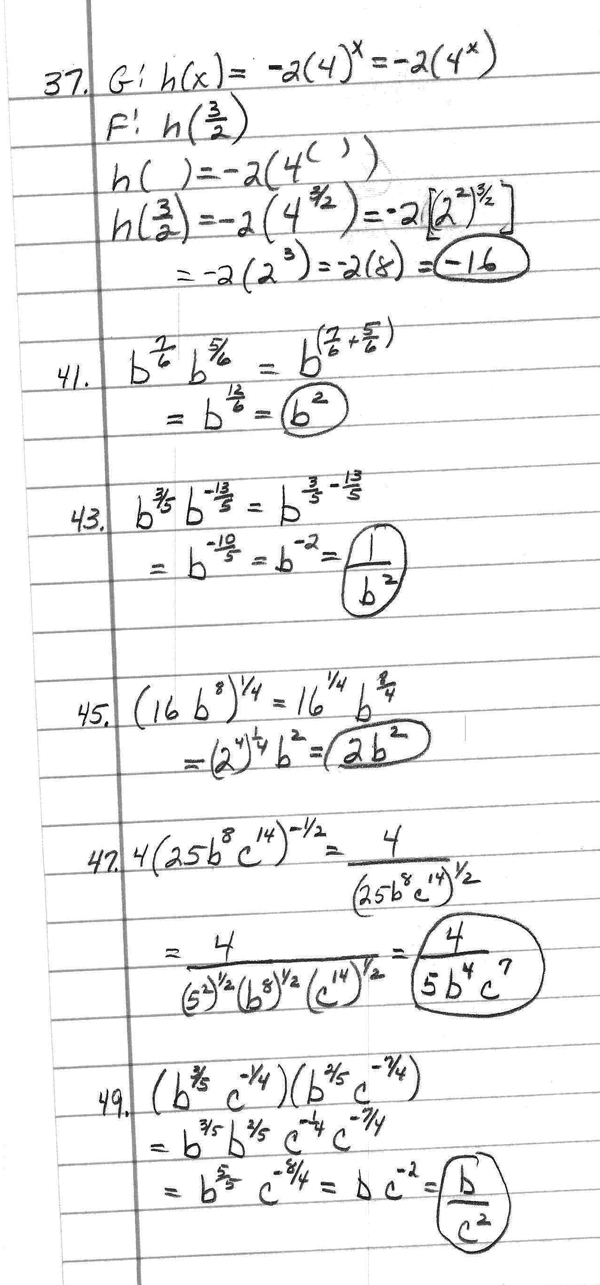 37. G: h(x) = -2(4)^x = -2(4^x)
F: h(3/2)
h( ) = -2(4^( ))
h(3/2) = -2(4^(3/2)) = -2[(2^2)^(3/2)]
= -2(2^3) = -2(8) = -16
41. b^(7/6) b^(5/6) = b^(7/6 + 5/6)
= b^(12/6) = b^2
43. b^(3/5) b^(-13/5) = b^(3/5 - 13/5)
= b^(-10/5) = b^(-2) = 1/b^2
45. (16 b^8)^(1/4) = 16^(1/4) b^(8/4)
= (2^4)^(1/4) b^2 = 2b^2
47. 4(25b^8 c^14)^(-1/2) = 4/(25b^8 c^14)^(1/2)
= 4/((5^2)^(1/2) (b^8)^(1/2) (c^14)^(1/2)) = 4/(5b^4 c^7)
49. (b^(3/5) c^(-1/4))(b^(2/5) c^(-7/4))
= b^(3/5) b^(2/5) c^(-1/4) c^(-7/4)
= b^(5/5) c^(-8/4) = b c^(-2) = b/c^2